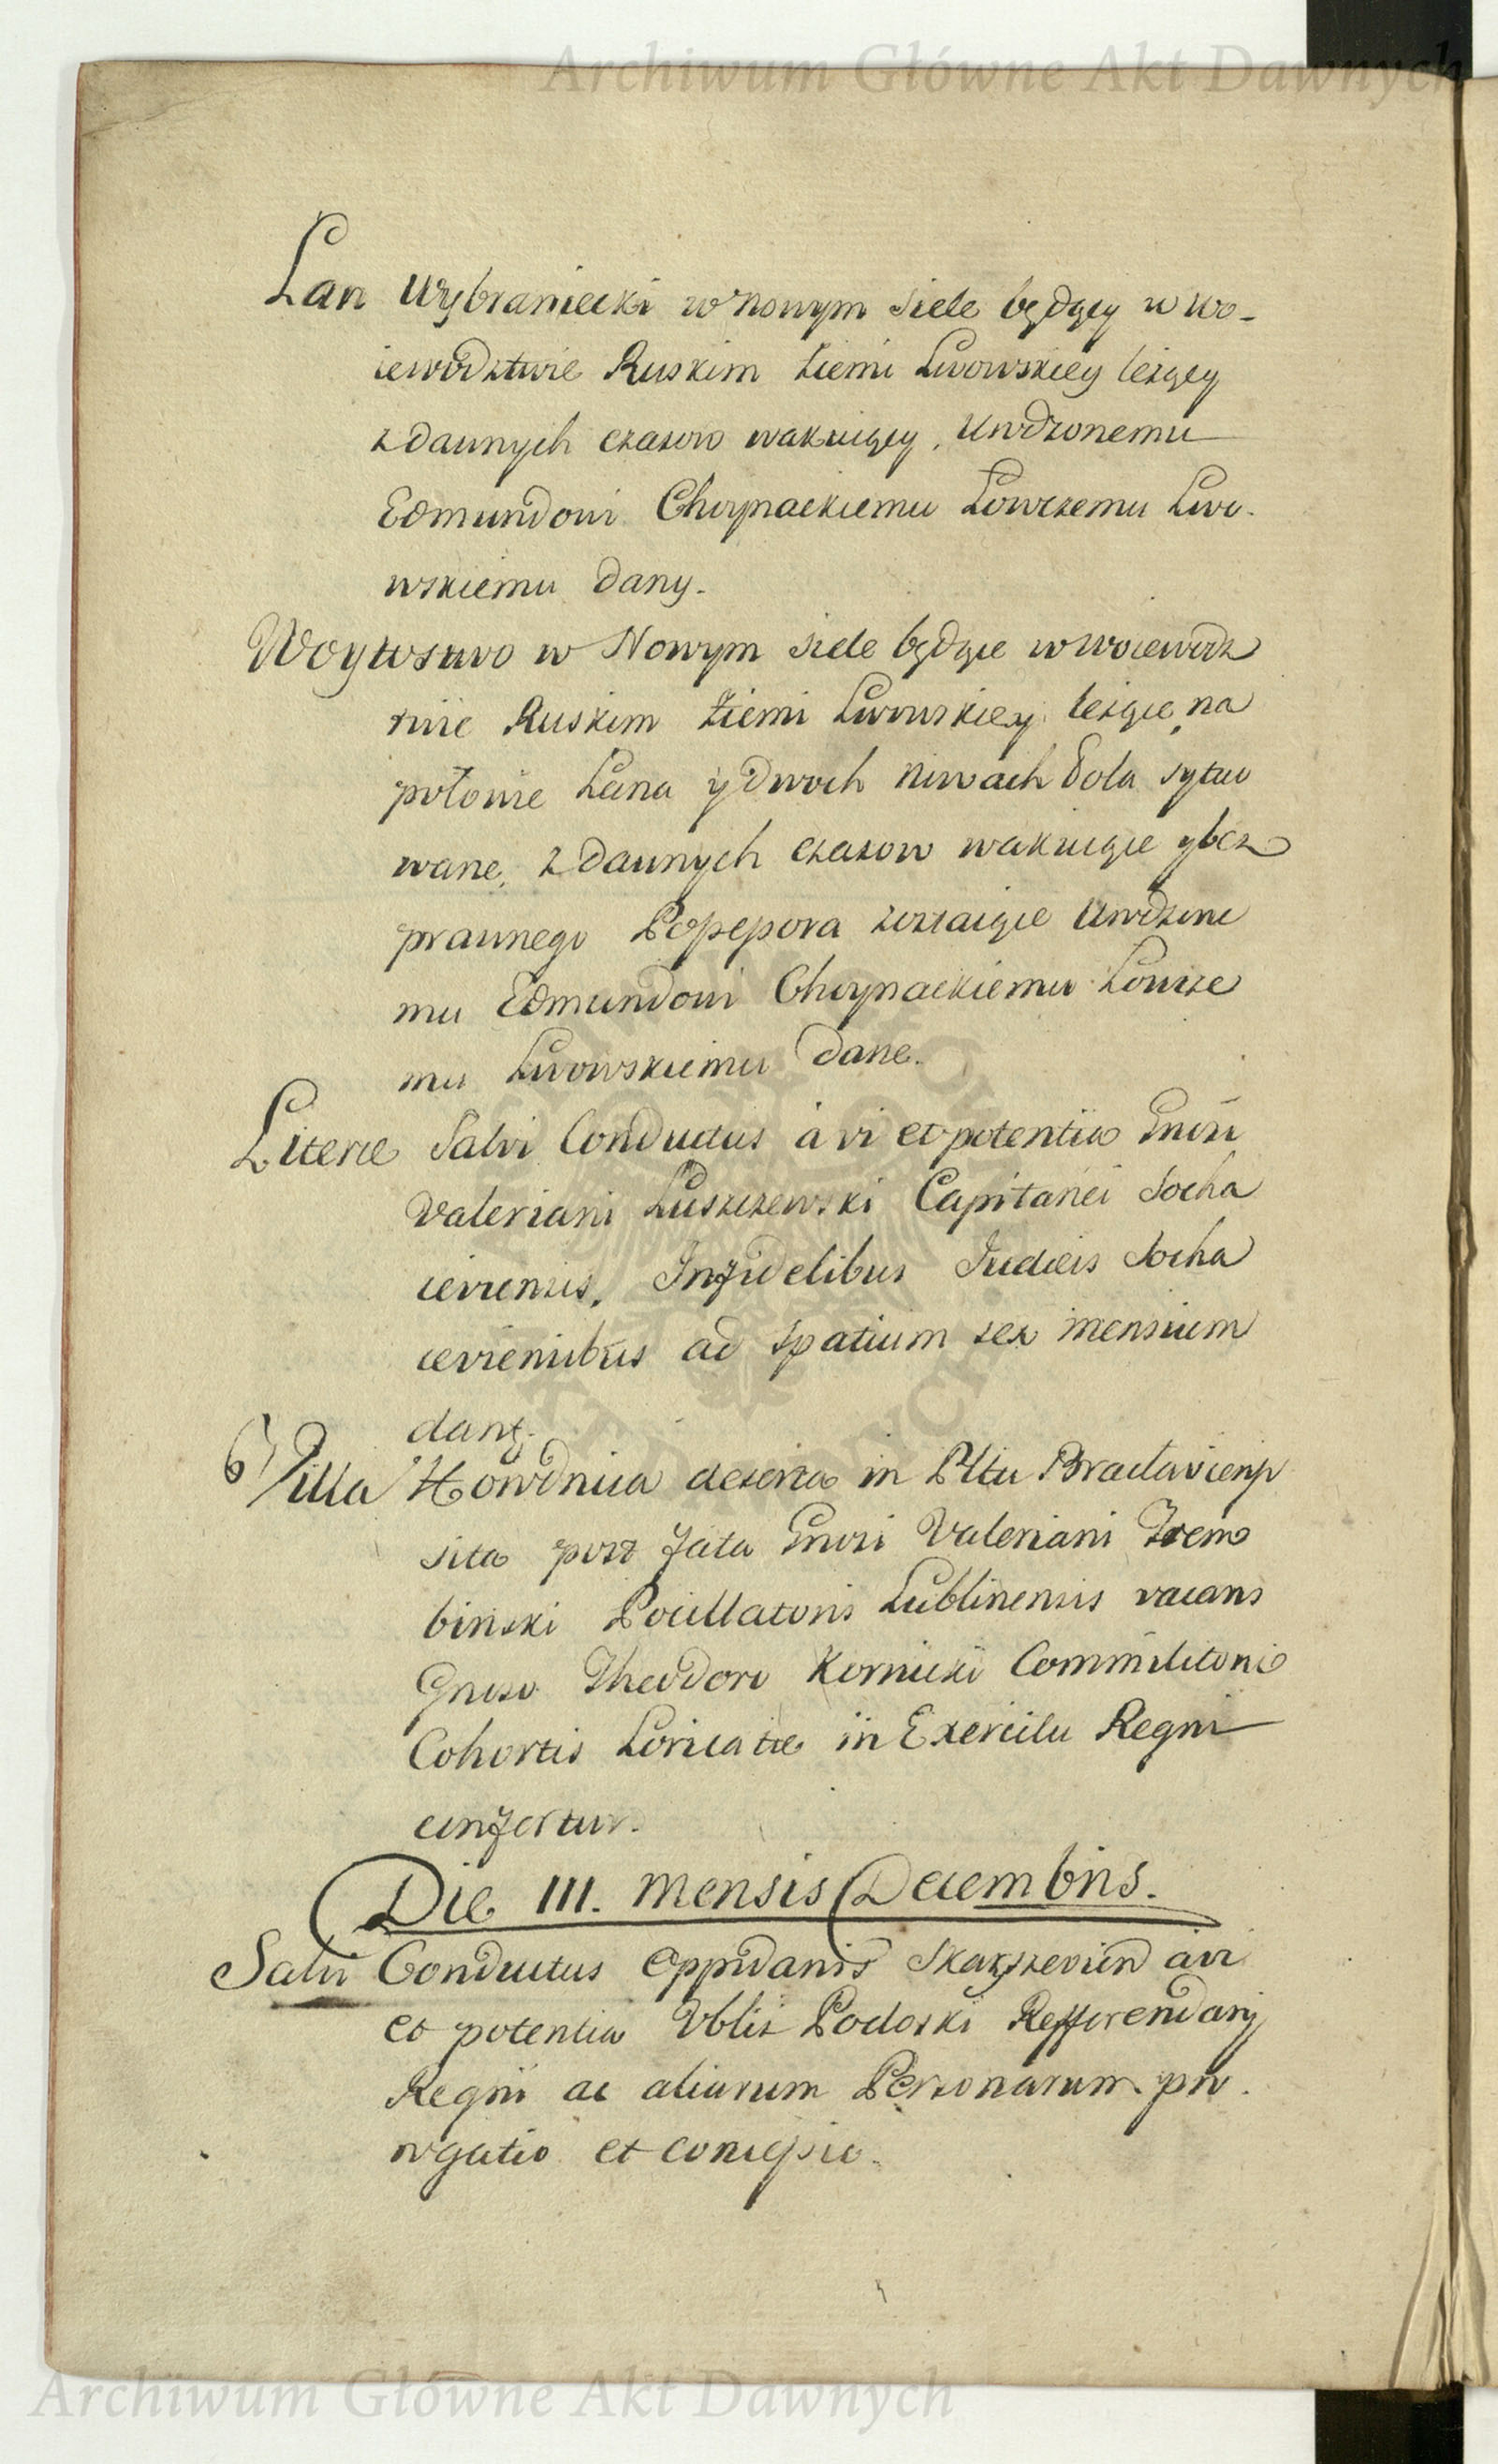 Archiwum Główne Akt Dawnych
Lan Wybraniecki w Nowym siele będący w Wo-
iewodztwie Ruskim Ziemi Lwowskiey leżący
z dawnych czasow wakuiący, Urodzonemu
Edmundowi Choynackiemu Łowczemu Lwo-
wskiemu dany.
Woytostwo w Nowym siele będące w Woiewodz
twie Ruskim Ziemi Lwowskiey leżące, na
połowie Łana y dwoch niwach Pola sytuo
wane, z dawnych czasow wakuiące y bez
prawnego Possessora zostaiące Urodzone
mu Edmundowi Choynackiemu Łowcze
mu Lwowskiemu dane.
Literæ Salvi Conductus à vi et potentia Gnosi
Valeriani Luszczewski Capitanei Socha
ceviensis, Infidelibus Judæis Socha
ceviensibus ad spatium sex mensium
dant.
Villa Howdniia deserta in Pltu Braclaviensi
sita post fata Gnosi Valeriani Trem
binski Pocillatoris Lublinensis vacans
Gnoso Theodoro Kornicki Commilitoni
Cohortis Loricatæ in Exercitu Regni
confertur.
Die III. Mensis Decembris.
Salvi Conductus Oppidanis Skarszevien à vi
et potentia Vblis Podoski Refferendarij
Regni ac aliarum Personarum pro-
rogatio et concessio.
Archiwum Główne Akt Dawnych